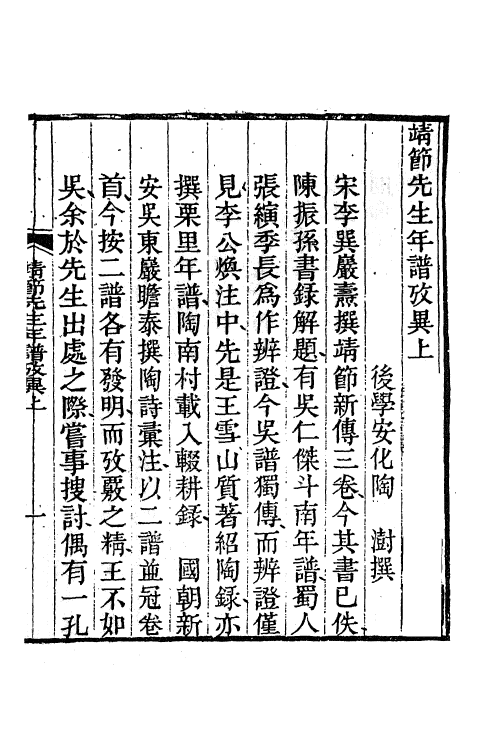 靖節先生年譜攷異上
後學安化陶　澍撰
宋李巽巖燾撰靖節新傳三卷今其書已佚
陳振孫書錄解題有吳仁傑斗南年譜蜀人
張縯季長爲作辨證今吳譜獨傳而辨證僅
見李公煥注中先是王雪山質著紹陶錄亦
撰栗里年譜陶南村載入輟耕錄　國朝新
安吳東巖瞻泰撰陶詩彙注以二譜並冠卷
首今按二譜各有發明而攷覈之精王不如
吳余於先生出處之際嘗事搜討偶有一孔
靖節先生年譜攷異上
一